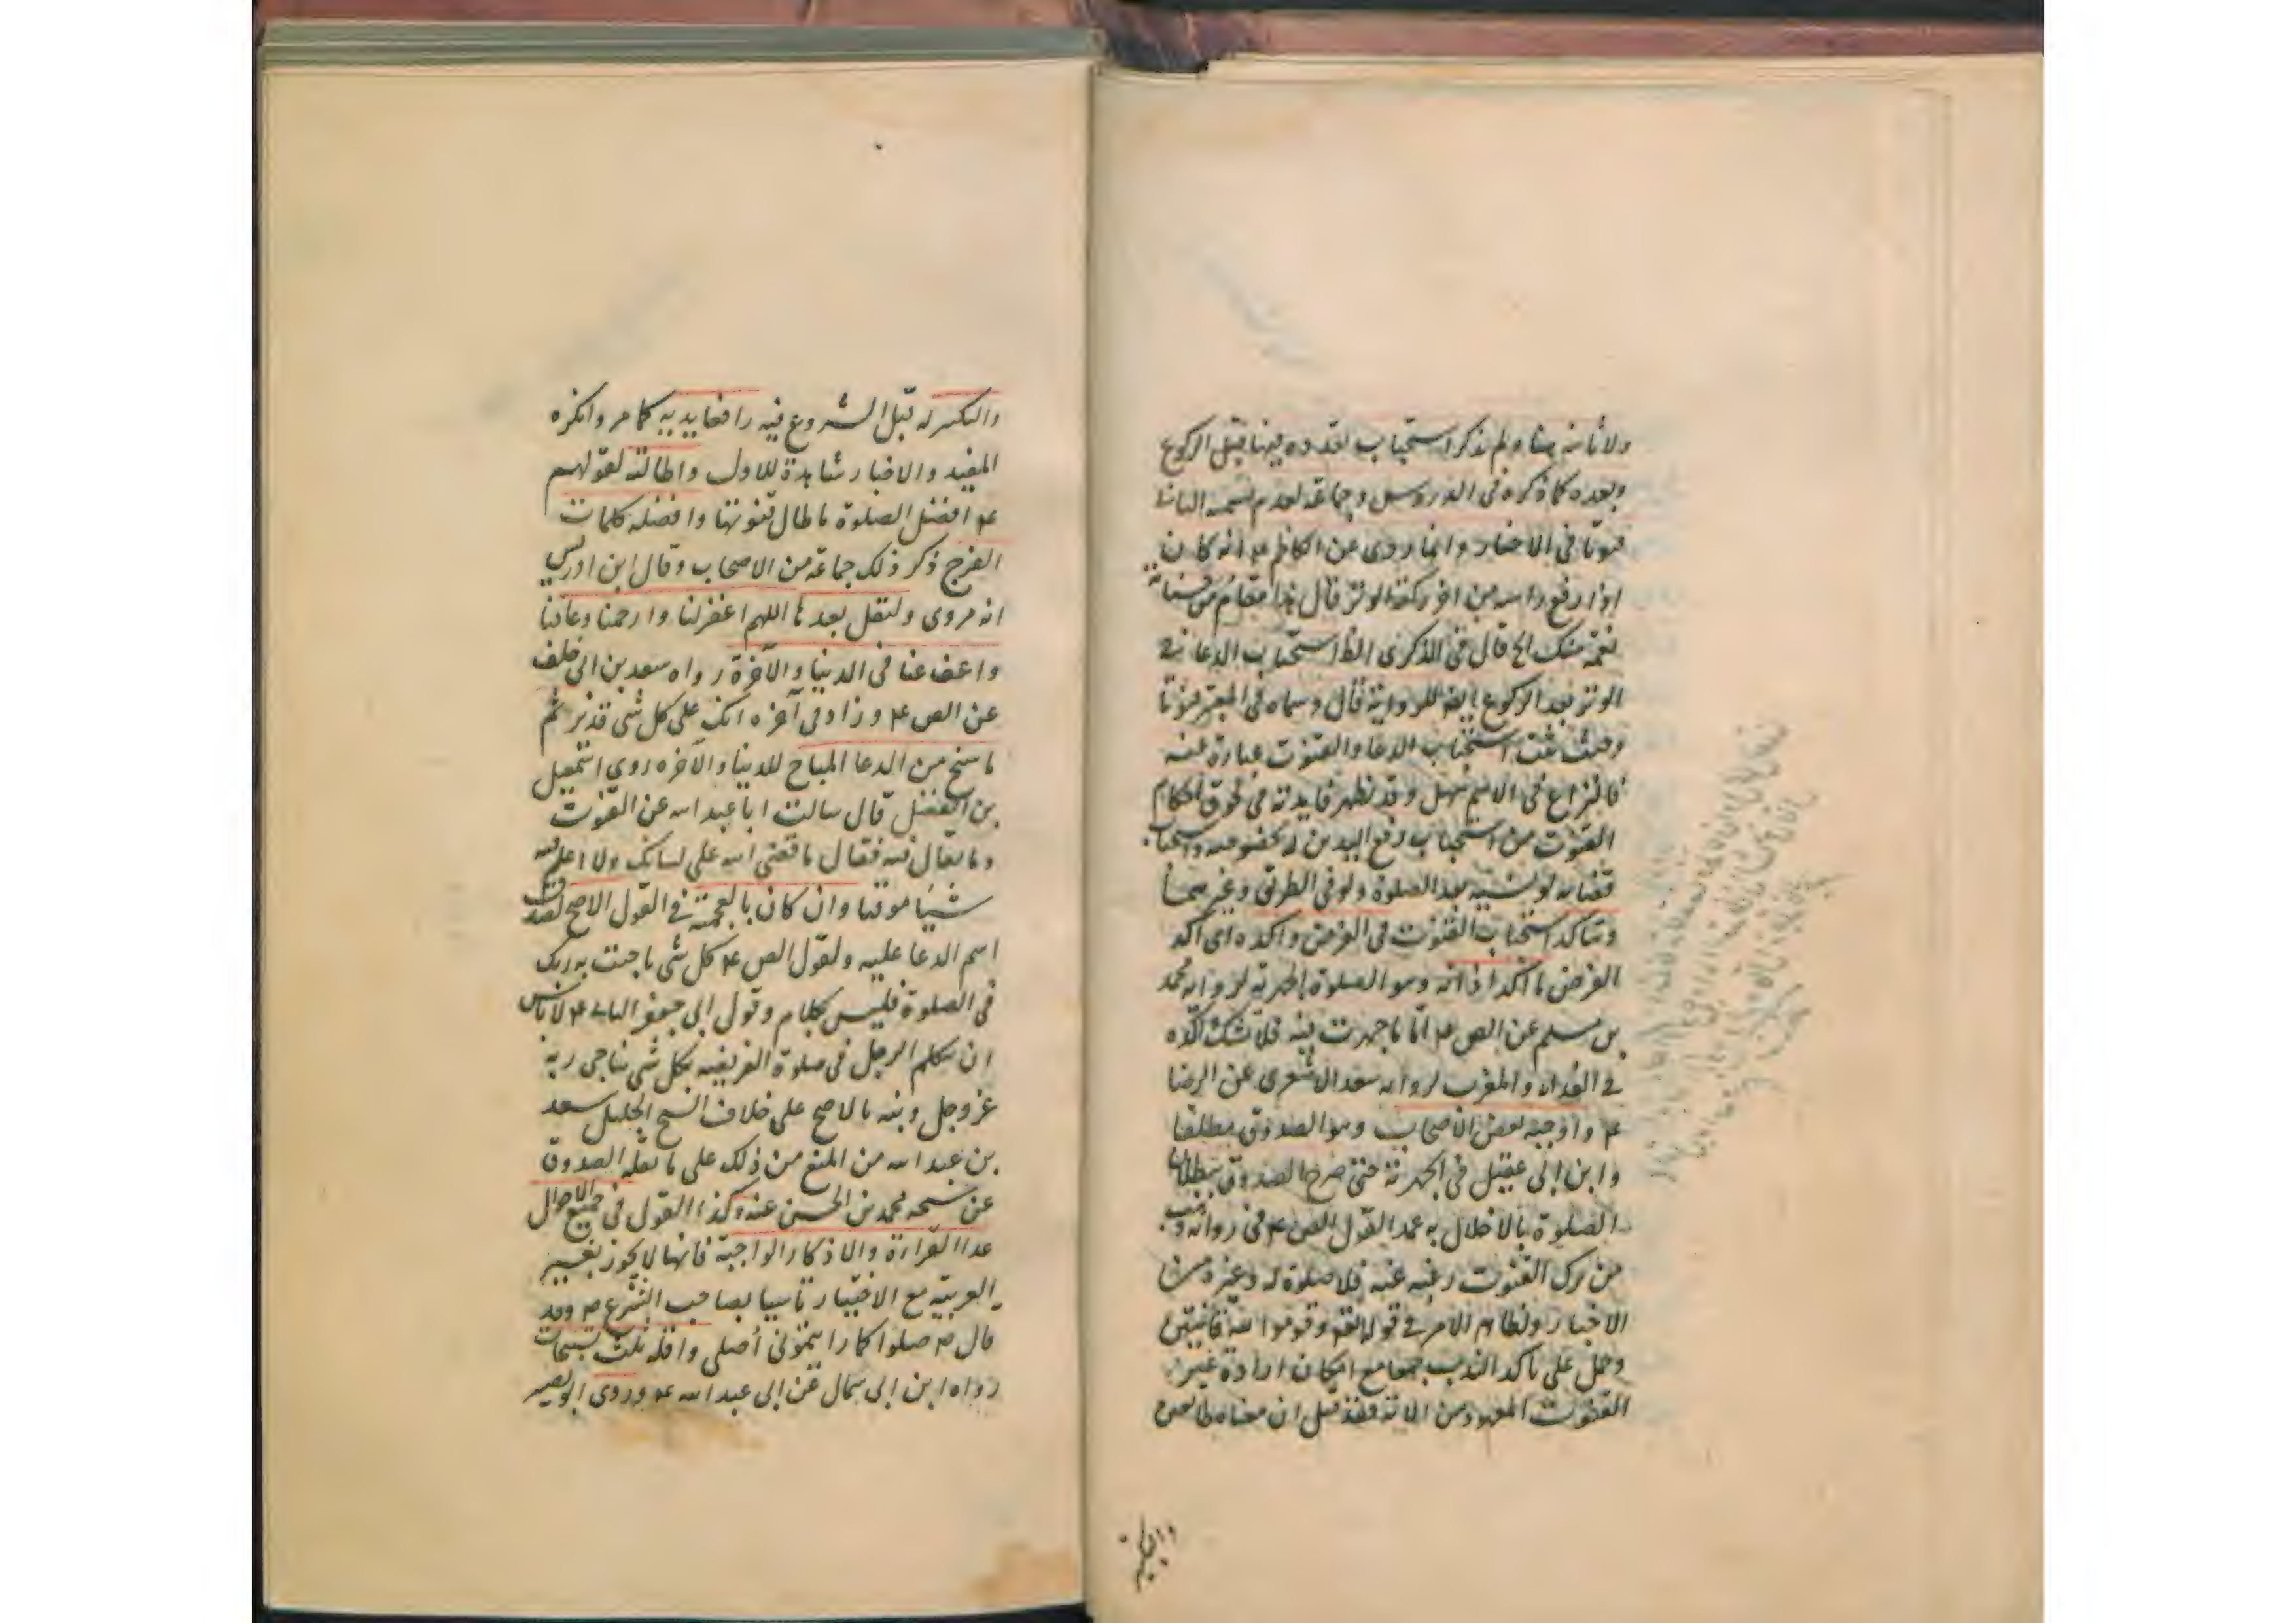 ولا ثانيه هنا ولم نذكر استحباب تعدده فيها قبل الركوع
وبعده كما ذكره في الدروس وجماعة لعدم تسمية الثاني
قنوتا في الاخبار وانما روى عن الكاظم ع انه كان
اذا رفع راسه من اخر ركعة الوتر قال هذا مقام من حسناته
نعمة منك الخ قال في الذكرى الظ استحباب الدعا في
الوتر بعد الركوع ايضا للرواية قال وسماه في المعتبر قنوتا
وحيث ثبت استحباب الدعا والقنوت عبارة عنه
فالنزاع في الاسم سهل وقد تظهر فايدته في لحوق احكام
القنوت من استحباب رفع اليدين له بخصوصه واستحباب
قضائه لو نسيه بعد الصلوة ولو في الطريق وغيرهما
ويتاكد استحباب القنوت في الفرض واكده اي اكد
الفرض ما اكد اذانه وهو الصلوة الجهرية لرواية محمد
بن مسلم عن الص ع اما ما جهرت فيه فلا تشك اكده
في الغداة والمغرب لرواية سعد الاشعرى عن الرضا
ع واوجبه بعض الاصحاب وهو الصدوق مطلقا
وابن ابي عقيل في الجهرية حتى صرح الصدوق ببطلان
الصلوة بالاخلال به عمدا لقول الص ع في رواية وهب
من ترك القنوت رغبة عنه فلا صلوة له وغيره من
الاخبار ولظاهر الامر في قوله تعم وقوموا لله قانتين
وحمل على تاكد الندب جمعا مع امكان ارادة غير
القنوت المعهود من الاية فقد قيل ان معناه طائعين
والتكبير له قبل الشروع فيه رافعا يديه كما مر وانكره
المفيد والاخبار شاهدة للاول واطالته لقولهم
ع افضل الصلوة ما طال قنوتها وافضله كلمات
الفرج ذكر ذلك جماعة من الاصحاب وقال ابن ادريس
انه مروى وليقل بعدها اللهم اغفر لنا وارحمنا وعافنا
واعف عنا في الدنيا والآخرة رواه سعد بن ابى خلف
عن الص ع وزاد في آخره انك على كل شى قدير ثم
ما سنح من الدعا المباح للدنيا والآخره روى اسمعيل
بن الفضل قال سالت ابا عبد الله عن القنوت
وما يقال فيه فقال ما قضى الله على لسانك ولا اعلم فيه
شيئا موقتا وان كان بالعجمية في القول الاصح لصدق
اسم الدعا عليه ولقول الص ع كل شى ناجيت به ربك
في الصلوة فليس بكلام وقول ابى جعفر الثاني ع لا باس
ان يتكلم الرجل في صلوة الفريضه بكل شى يناجى ربه
عز وجل ونبه بالاصح على خلاف الشيخ الجليل سعد
بن عبد الله من المنع من ذلك على ما نقله الصدوق
عن شيخه محمد بن الحسن عنه وكذا القول في جميع الاحوال
عدا القراءة والاذكار الواجبة فانها لا يجوز بغير
العربية مع الاختيار تاسيا بصاحب الشرع ص وقد
قال ص صلوا كما رايتموني أصلى واقله ثلث تسبيحات
رواه ابن ابى سمال عن ابى عبد الله ع وروى ابو بصير